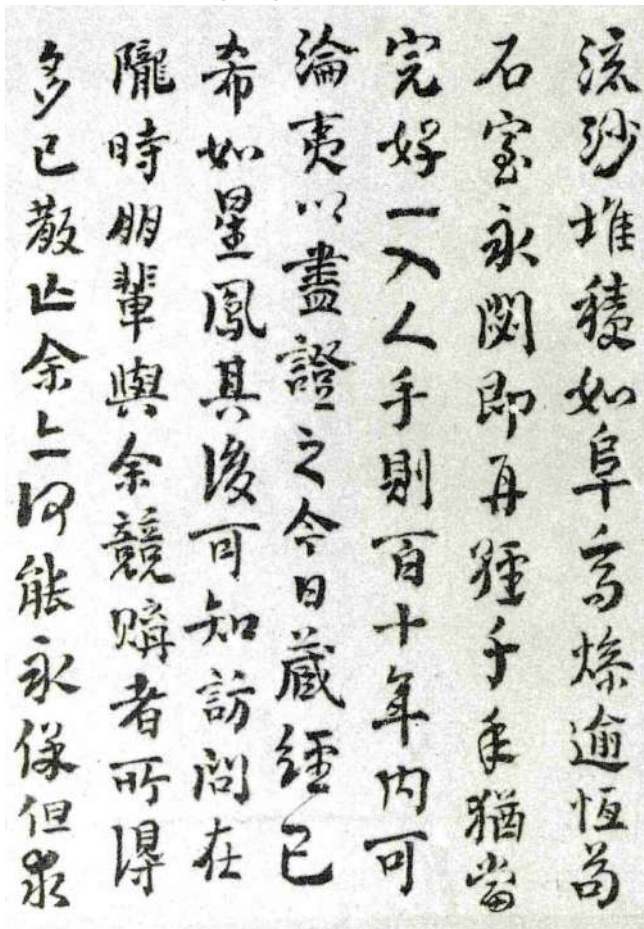 流沙堆積如阜高燥逾恆苟
石室永閟即再經千年猶當
完好一入人手則百十年內可
淪夷以盡證之今日藏經已
希如星鳳其後可知訪問在
隴時朋輩與余競購者所得
多已散亡余亦何能永保但求